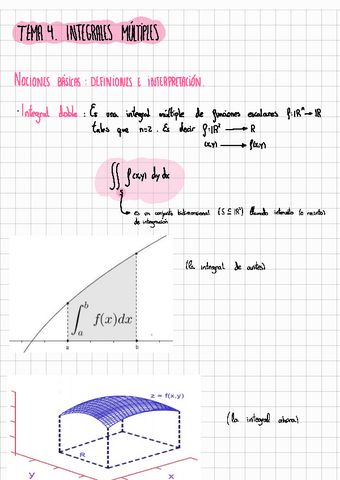 TEMA 4. INTEGRALES MÚLTIPLES
NOCIONES BÁSICAS: DEFINIONES E INTERPRETACIÓN.
· Integral doble: Es una integral múltiple de funciones escalares f: ℝⁿ → ℝ
tales que n=2. Es decir f: ℝ² → ℝ
(x,y) → f(x,y)
∬_S f(x,y) dy dx
→ es un conjunto bidimensional (S ⊆ ℝ²) llamado intervalo (o recinto)
de integración
(la integral de antes)
∫_a^b f(x)dx
a b
z = f(x,y)
(la integral ahora)
R
y x